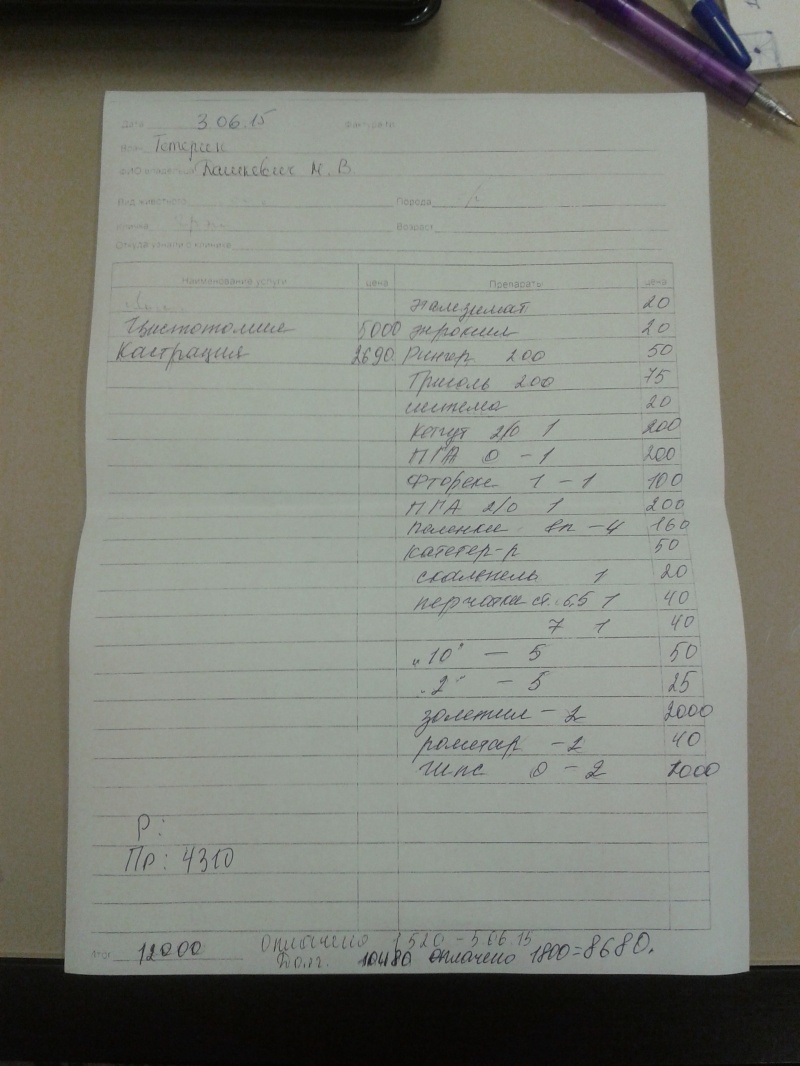 Дата 3.06.15 Фактура №
Врач Тетерин
ФИО владельца Дашкевич М. В.
Вид животного Порода
Кличка Возраст
Откуда узнали о клинике
Наименование услуги цена Препараты цена
этамзилат 20
Цистотомия 5000 энроксил 20
Кастрация 2690 Рингер 200 50
Трисоль 200 75
система 20
Кетгут 2/0 1 200
ПГА 0 - 1 200
Фторекс 1 - 1 100
ПГА 2/0 1 200
Пеленки - 4 160
катетер-р 50
скальпель 1 20
перчатки ст. 6,5 1 40
7 1 40
„10" - 5 50
„2" - 5 25
золетил - 2 2000
рометар - 2 40
0 - 2 1000
Р:
Пр: 4310
Итог 12000 оплачено 1520 - 5.06.15
Долг 10480 оплачено 1800=8680.